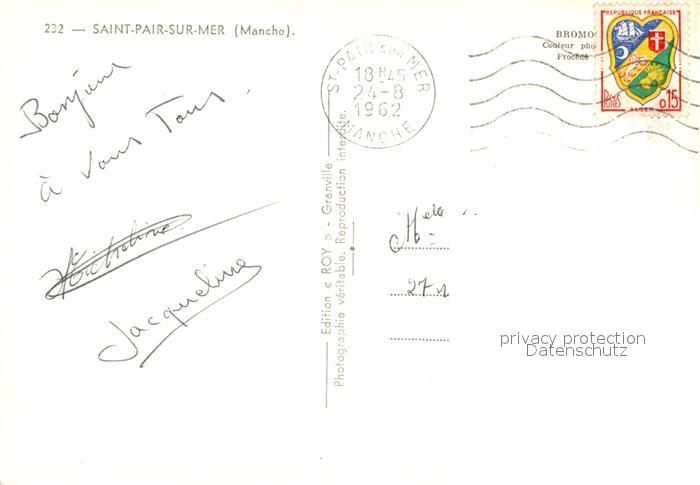 232 — SAINT-PAIR-SUR-MER (Manche).
BROMO
Couleur pho
Procédé
REPUBLIQUE FRANÇAISE
POSTES
0,15
ALGER
ST-PAIR SUR MER
18 H 45
24-8
1962
MANCHE
Bonjour
à vous Tous.
Micheline
Jacqueline
Edition « ROY » - Granville
Photographie véritable. Reproduction interdite.
Melle
privacy protection
Datenschutz